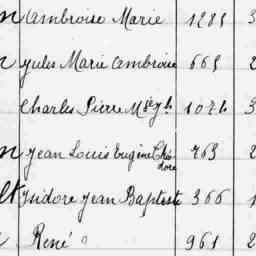 n Ambroise Marie 1285 3
Jules Marie Ambroise 665 2
Charles Pierre M 3
n Jean Louis Eugène Théodore 763 2
lt Isidore Jean Baptiste 366 1
René 961 2